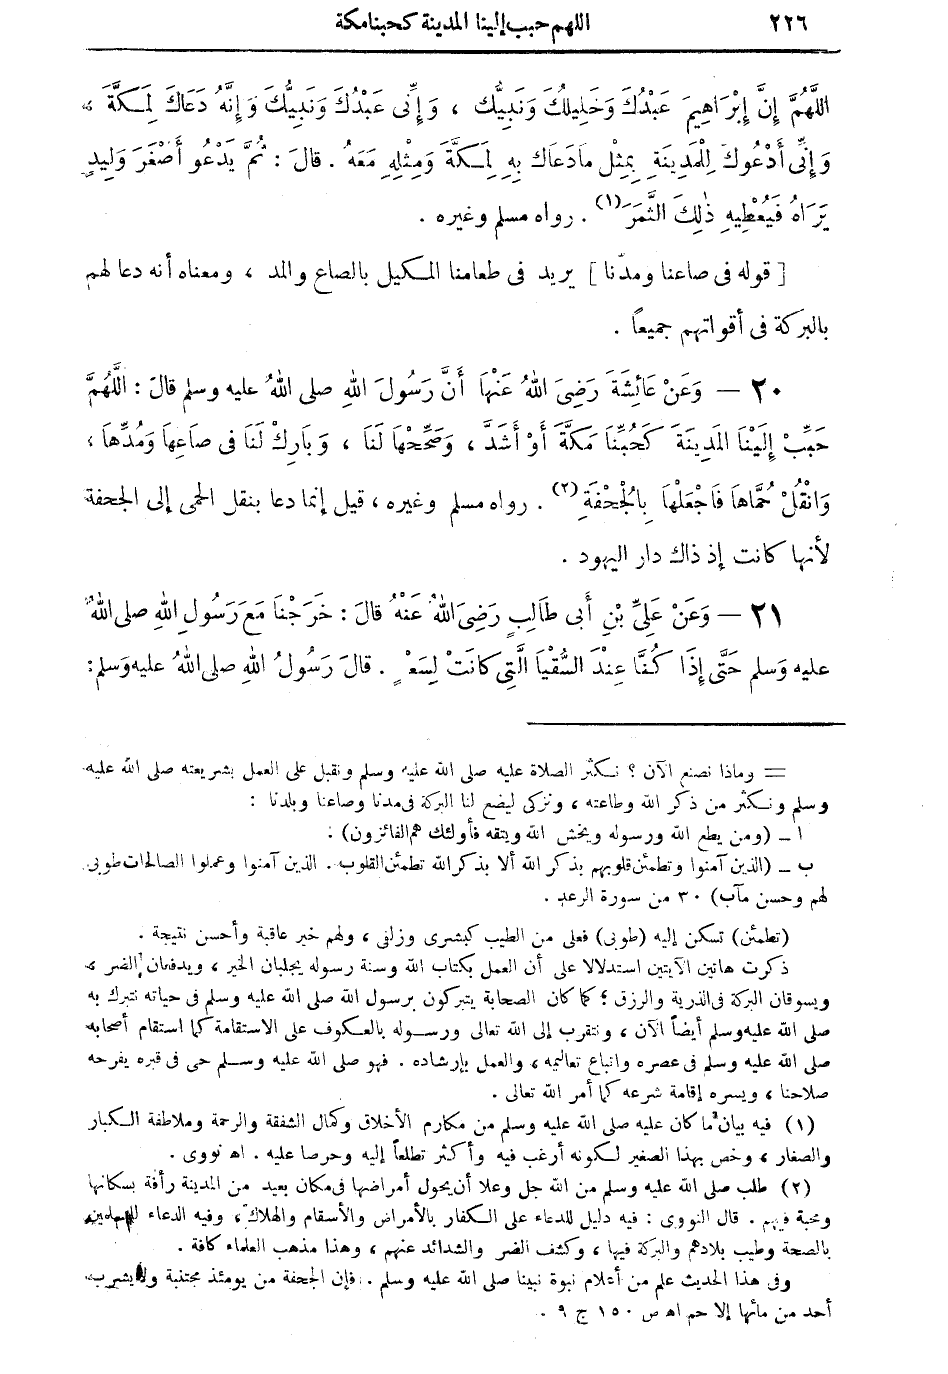 ٢٢٦ اللهم حبب إلينا المدينة كحبنا مكة
اللَّهُمَّ إِنَّ إِبْرَاهِيمَ عَبْدُكَ وَخَلِيلُكَ وَنَبِيُّكَ ، وَإِنِّى عَبْدُكَ وَنَبِيُّكَ وَإِنَّهُ دَعَاكَ لِمَكَّةَ ،
وَإِنِّى أَدْعُوكَ لِلْمَدِينَةِ بِمِثْلِ مَادَعَاكَ بِهِ لِمَكَّةَ وَمِثْلِهِ مَعَهُ . قالَ : ثُمَّ يَدْعُو أَصْغَرَ وَلِيدٍ
يَرَاهُ فَيُعْطِيهِ ذٰلِكَ الثَّمَرَ (١) . رواه مسلم وغيره .
[ قوله فى صاعنا ومدّنا ] يريد فى طعامنا المكيل بالصاع والمد ، ومعناه أنه دعا لهم
بالبركة فى أقواتهم جميعاً .
٢٠ — وَعَنْ عَائِشَةَ رَضِىَ اللهُ عَنْهَا أَنَّ رَسُولَ اللهِ صلى اللهُ عليه وسلم قالَ : اللَّهُمَّ
حَبِّبْ إِلَيْنَا المَدِينَةَ كَحُبِّنَا مَكَّةَ أَوْ أَشَدَّ ، وَصَحِّحْهَا لَنَا ، وَبَارِكْ لَنَا فى صَاعِهَا وَمُدِّهَا ،
وَانْقُلْ حُمَّاهَا فَاجْعَلْهَا بِالْجُحْفَةِ (٢) . رواه مسلم وغيره ، قيل إنما دعا بنقل الحمى إلى الجحفة
لأنها كانت إذ ذاك دار اليهود .
٢١ — وَعَنْ عَلِىِّ بْنِ أَبى طَالِبٍ رَضِىَ اللهُ عَنْهُ قالَ : خَرَجْنَا مَعَ رَسُولِ اللهِ صلى اللهُ
عليه وَسلم حَتَّى إِذَا كُنَّا عِنْدَ السُّقْيَا الَّتِى كانَتْ لِسَعْدٍ . قالَ رَسُولُ اللهِ صلى اللهُ عليه وَسلم :
= وماذا نصنع الآن ؟ نكثر الصلاة عليه صلى الله عليه وسلم ونقبل على العمل بشريعته صلى الله عليه
وسلم ونكثر من ذكر الله وطاعته ، ونزكى ليضع لنا البركة فى مدنا وصاعنا وبلدنا :
ا ـ (ومن يطع الله ورسوله ويخش الله ويتقه فأولئك هم الفائزون) .
ب ـ (الذين آمنوا وتطمئن قلوبهم بذكر الله ألا بذكر الله تطمئن القلوب . الذين آمنوا وعملوا الصالحات طوبى
لهم وحسن مآب) ٣٠ من سورة الرعد .
(تطمئن) تسكن إليه (طوبى) فعلى من الطيب كبشرى وزلفى ، ولهم خير عاقبة وأحسن نتيجة .
ذكرت هاتين الآيتين استدلالا على أن العمل بكتاب الله وسنة رسوله يجلبان الخير ، ويدفعان الضر ،
ويسوقان البركة فى الذرية والرزق ؛ كما كان الصحابة يتبركون برسول الله صلى الله عليه وسلم فى حياته نتبرك به
صلى الله عليه وسلم أيضاً الآن ، ونتقرب إلى الله تعالى ورسوله بالعكوف على الاستقامة كما استقام أصحابه
صلى الله عليه وسلم فى عصره واتباع تعاليمه ، والعمل بإرشاده . فهو صلى الله عليه وسلم حى فى قبره يفرحه
صلاحنا ، ويسره إقامة شرعه كما أمر الله تعالى .
(١) فيه بيان ما كان عليه صلى الله عليه وسلم من مكارم الأخلاق وكمال الشفقة والرحمة وملاطفة الكبار
والصغار ، وخص بهذا الصغير لكونه أرغب فيه وأكثر تطلعاً إليه وحرصا عليه . اه نووى .
(٢) طلب صلى الله عليه وسلم من الله جل وعلا أن يحول أمراضها فى مكان بعيد من المدينة رأفة بسكانها
ومحبة فيهم . قال النووى : فيه دليل للدعاء على الكفار بالأمراض والأسقام والهلاك ، وفيه الدعاء للمسلمين
بالصحة وطيب بلادهم والبركة فيها ، وكشف الضر والشدائد عنهم ، وهذا مذهب العلماء كافة .
وفى هذا الحديث علم من أعلام نبوة نبينا صلى الله عليه وسلم . فإن الجحفة من يومئذ مجتنبة ولا يشرب
أحد من مائها إلا حم اه ص ١٥٠ ج ٩ .